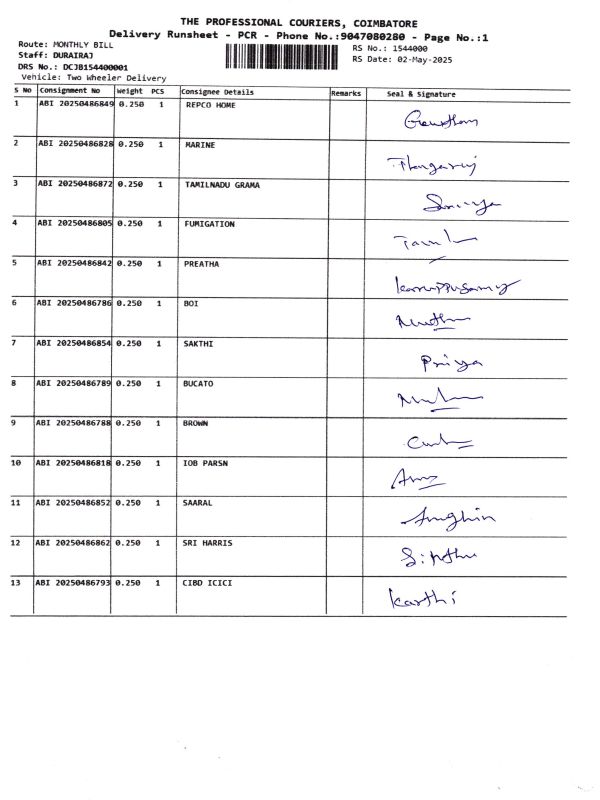 THE PROFESSIONAL COURIERS, COIMBATORE
Delivery Runsheet - PCR - Phone No.:9047080280 - Page No.:1
Route: MONTHLY BILL
RS No.: 1544000
Staff: DURAIRAJ
RS Date: 02-May-2025
DRS No.: DCJB154400001
Vehicle: Two Wheeler Delivery
S No Consignment No Weight PCS Consignee Details Remarks Seal & Signature
1 ABI 20250486849 0.250 1 REPCO HOME Gowtham
2 ABI 20250486828 0.250 1 MARINE Thangaraj
3 ABI 20250486872 0.250 1 TAMILNADU GRAMA
4 ABI 20250486805 0.250 1 FUMIGATION
5 ABI 20250486842 0.250 1 PREATHA Karruppusamy
6 ABI 20250486786 0.250 1 BOI
7 ABI 20250486854 0.250 1 SAKTHI Priya
8 ABI 20250486789 0.250 1 BUCATO
9 ABI 20250486788 0.250 1 BROWN
10 ABI 20250486818 0.250 1 IOB PARSN
11 ABI 20250486852 0.250 1 SAARAL
12 ABI 20250486862 0.250 1 SRI HARRIS
13 ABI 20250486793 0.250 1 CIBD ICICI Karthi